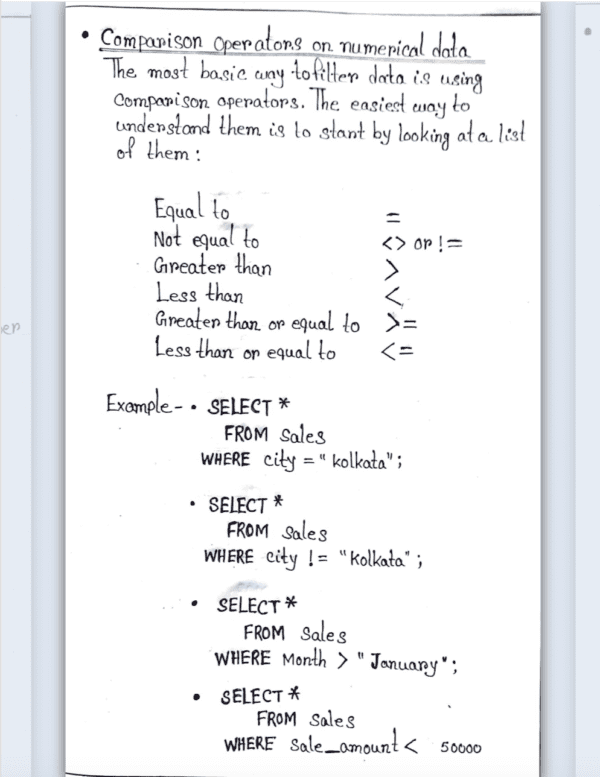 • Comparison operators on numerical data
The most basic way to filter data is using
comparison operators. The easiest way to
understand them is to start by looking at a list
of them :
Equal to =
Not equal to <> or !=
Greater than >
Less than <
Greater than or equal to >=
Less than or equal to <=
er
Example - • SELECT *
FROM Sales
WHERE city = "kolkata" ;
• SELECT *
FROM Sales
WHERE city != "Kolkata" ;
• SELECT *
FROM Sales
WHERE Month > "January" ;
• SELECT *
FROM Sales
WHERE Sale_amount < 50000